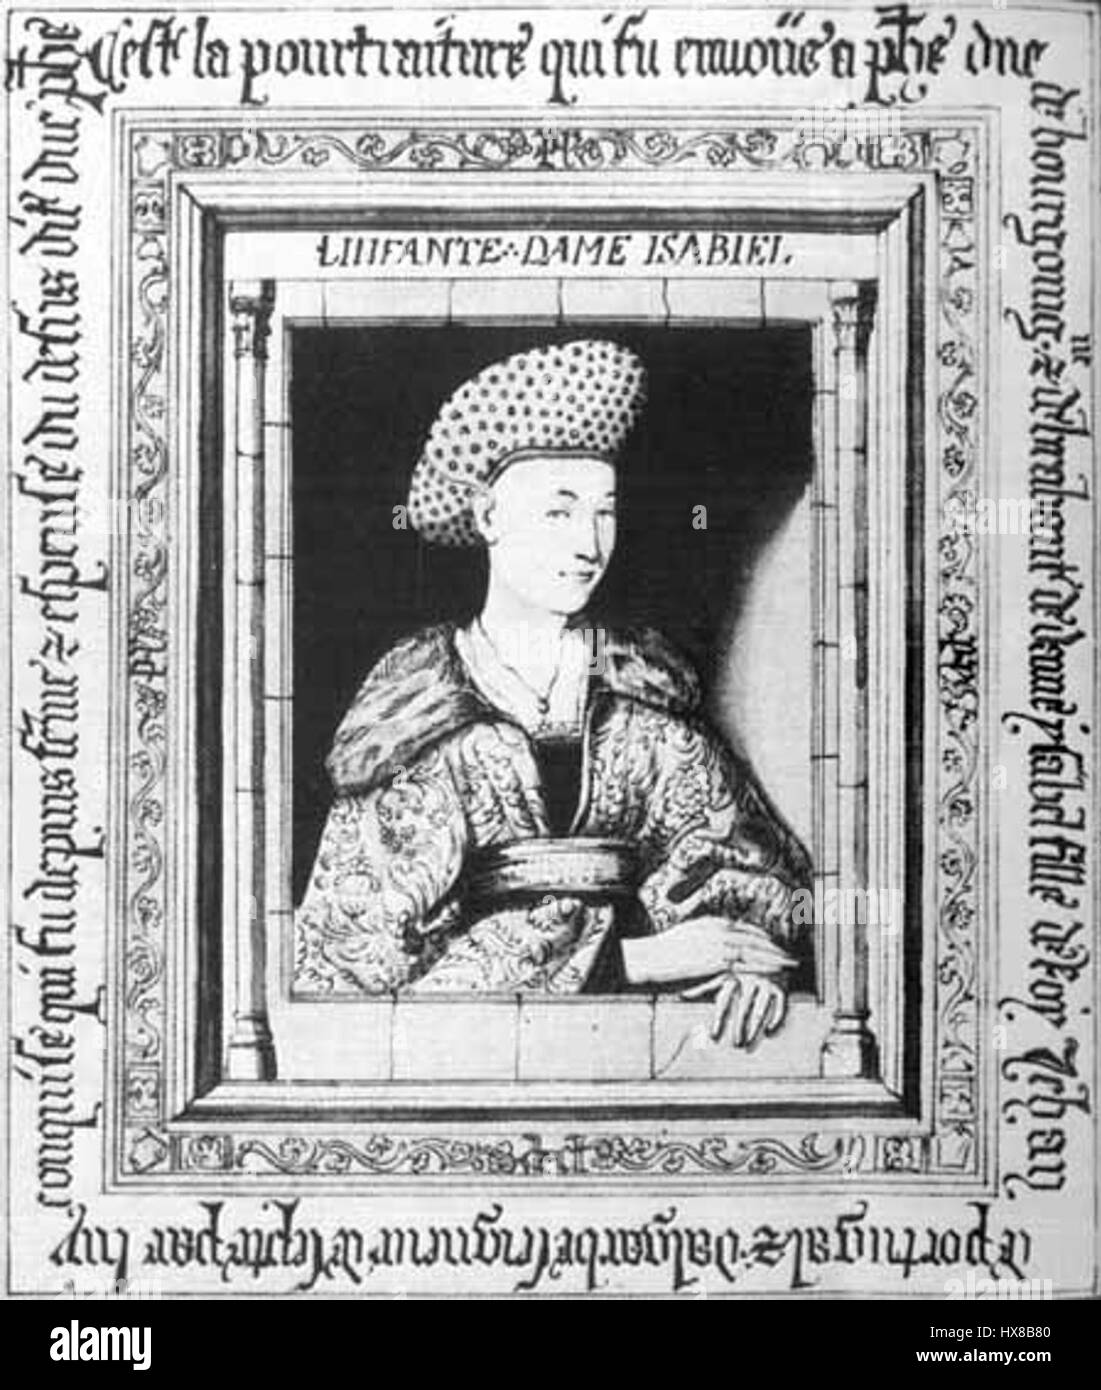 Cest la pourtraiture qui fu envoiie a phe duc
de bourgoingne & de brabant de dame ysabel fille de Roy Jehan
de portugal & dalgarbe seigneur de septe par luy
conquise qui fu depuis feme & espeuse du desus dit duc phe
LIIIFANTE·DAME ISABIEL.
alamy stock photo
HX8B80
www.alamy.com